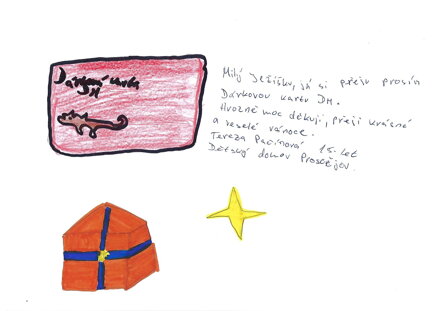 Dárková karta
DM
Milý Ježíšku, já si přeju prosím
Dárkovou kartu DM.
Hrozně moc děkuji, přeji krásné
a veselé vánoce.
Tereza 15. let
Dětský domov Prostějov.